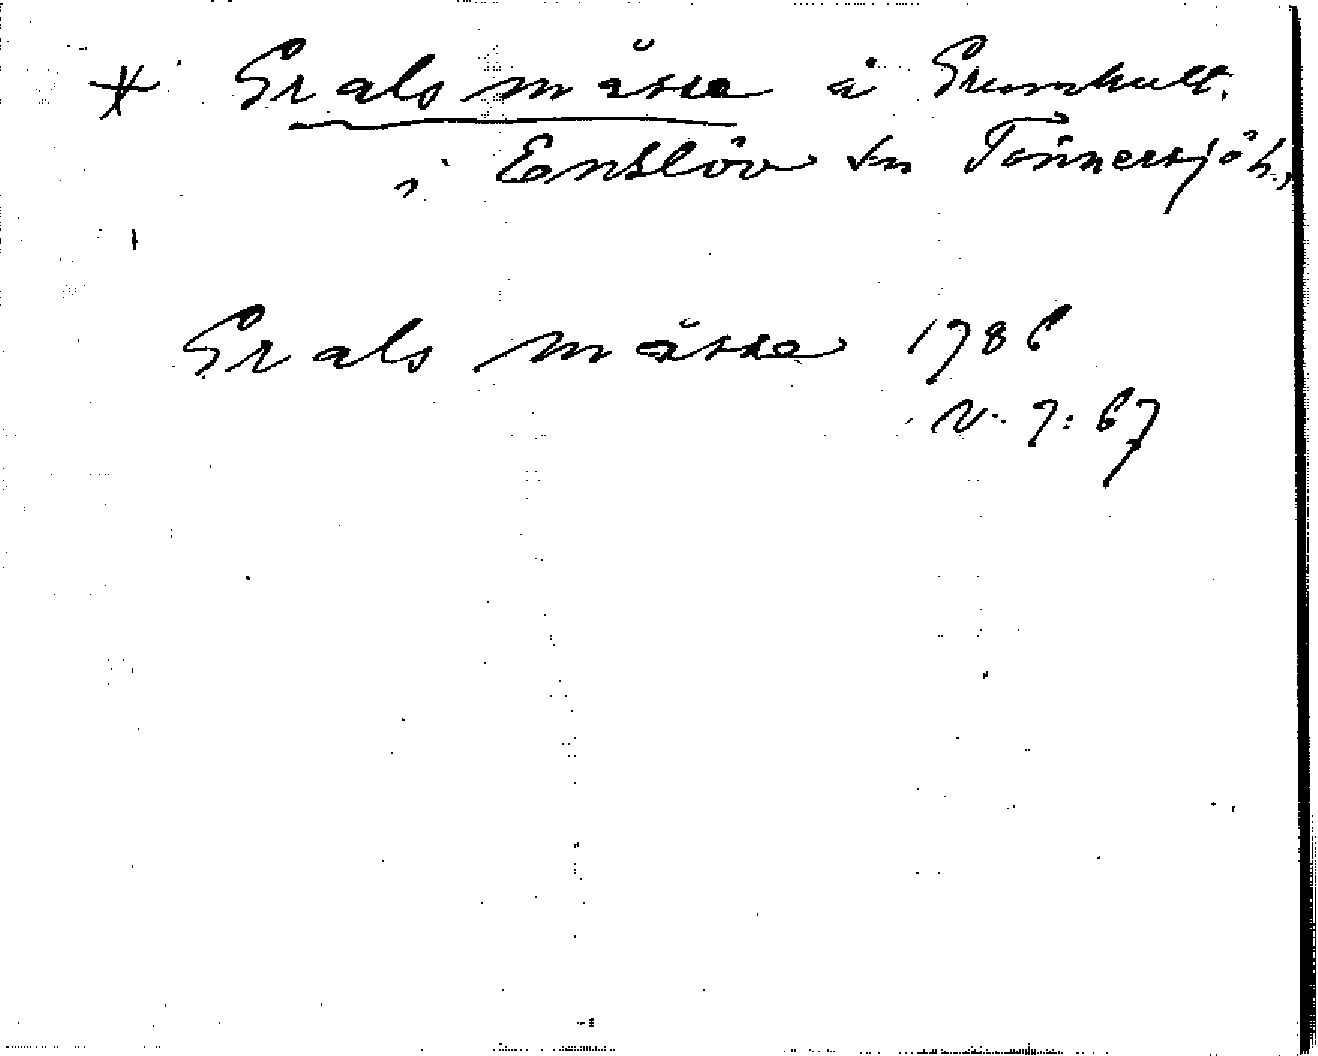 * Grals måsse å Grunnhult.
i Enslöv sn Tönnersjö h.,
Grals måsse 1786
v. 7: 67